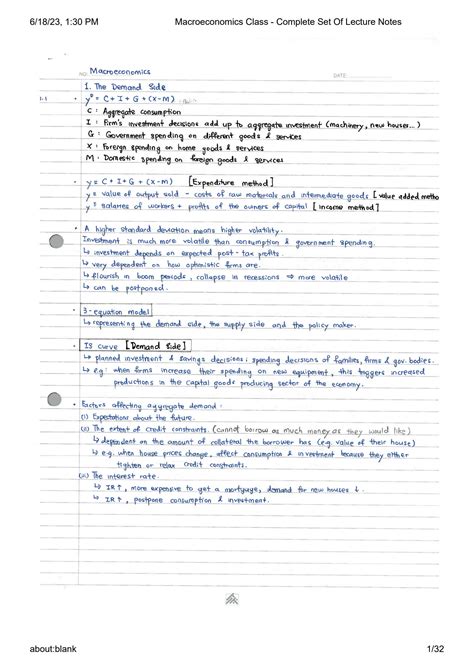 6/18/23, 1:30 PM Macroeconomics Class - Complete Set Of Lecture Notes
NO. Macroeconomics DATE
1. The Demand Side
1.1 • yᴰ = C + I + G + (X-M)
C : Aggregate consumption
I : Firm's investment decisions add up to aggregate investment (machinery, new houses...)
G : Government spending on different goods & services
X : Foreign spending on home goods & services
M : Domestic spending on foreign goods & services
• y = C + I + G + (X-M) [Expenditure method]
y = value of output sold - costs of raw materials and intermediate goods [value added metho
y = salaries of workers + profits of the owners of capital [income method]
• A higher standard deviation means higher volatility.
Investment is much more volatile than consumption & government spending.
↳ investment depends on expected post-tax profits.
↳ very dependent on how optimistic firms are.
↳ flourish in boom periods, collapse in recessions ⇒ more volatile
↳ can be postponed.
• 3-equation model
↳ representing the demand side, the supply side and the policy maker.
• IS curve [Demand Side]
↳ planned investment & savings decisions; spending decisions of families, firms & gov. bodies.
↳ eg: when firms increase their spending on new equipment, this triggers increased
productions in the capital goods producing sector of the economy.
• Factors affecting aggregate demand:
(i) Expectations about the future.
(ii) The extent of credit constraints. (cannot borrow as much money as they would like)
↳ dependent on the amount of collateral the borrower has (eg. value of their house)
↳ e.g. when house prices change, affect consumption & investment because they either
tighten or relax credit constraints.
(iii) The interest rate.
↳ IR↑, more expensive to get a mortgage, demand for new houses ↓.
↳ IR↑, postpone consumption & investment.
about:blank 1/32